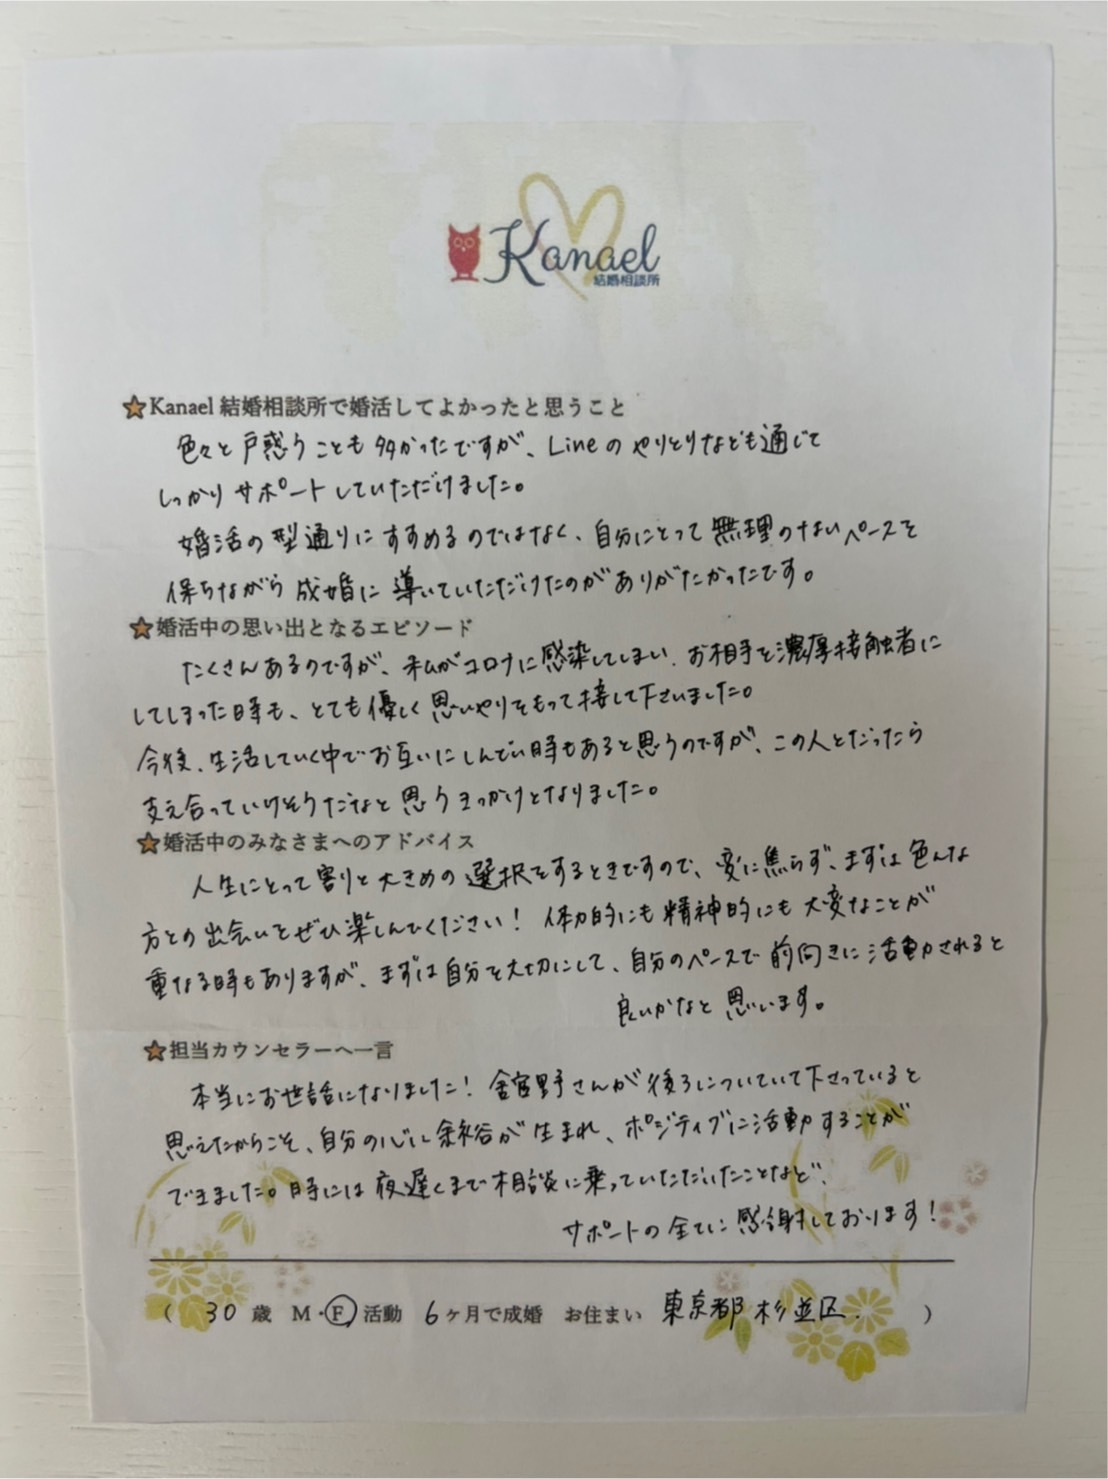 Kanael
結婚相談所
★Kanael 結婚相談所で婚活してよかったと思うこと
色々と戸惑うことも多かったですが、Lineのやりとりなども通じて
しっかりサポートしていただけました。
婚活の型通りにすすめるのではなく、自分にとって無理のないペースを
保ちながら成婚に導いていただけたのがありがたかったです。
★婚活中の思い出となるエピソード
たくさんあるのですが、私がコロナに感染してしまい、お相手を濃厚接触者に
してしまった時も、とても優しく思いやりをもって接して下さいました。
今後、生活していく中でお互いにしんどい時もあると思うのですが、この人とだったら
支え合っていけそうだなと思うきっかけとなりました。
★婚活中のみなさまへのアドバイス
人生にとって割りと大きめの選択をするときですので、変に焦らず、まずは色んな
方との出会いをぜひ楽しんでください！体力的にも精神的にも大変なことが
重なる時もありますが、まずは自分を大切にして、自分のペースで前向きに活動されると
良いかなと思います。
★担当カウンセラーへ一言
本当にお世話になりました！舘野さんが後ろについていて下さっていると
思えたからこそ、自分の心に余裕が生まれ、ポジティブに活動することが
できました。時には夜遅くまで相談に乗っていただいたことなど、
サポートの全てに感謝しております！
（ 30 歳 M・F 活動 6ヶ月で成婚 お住まい 東京都杉並区. ）